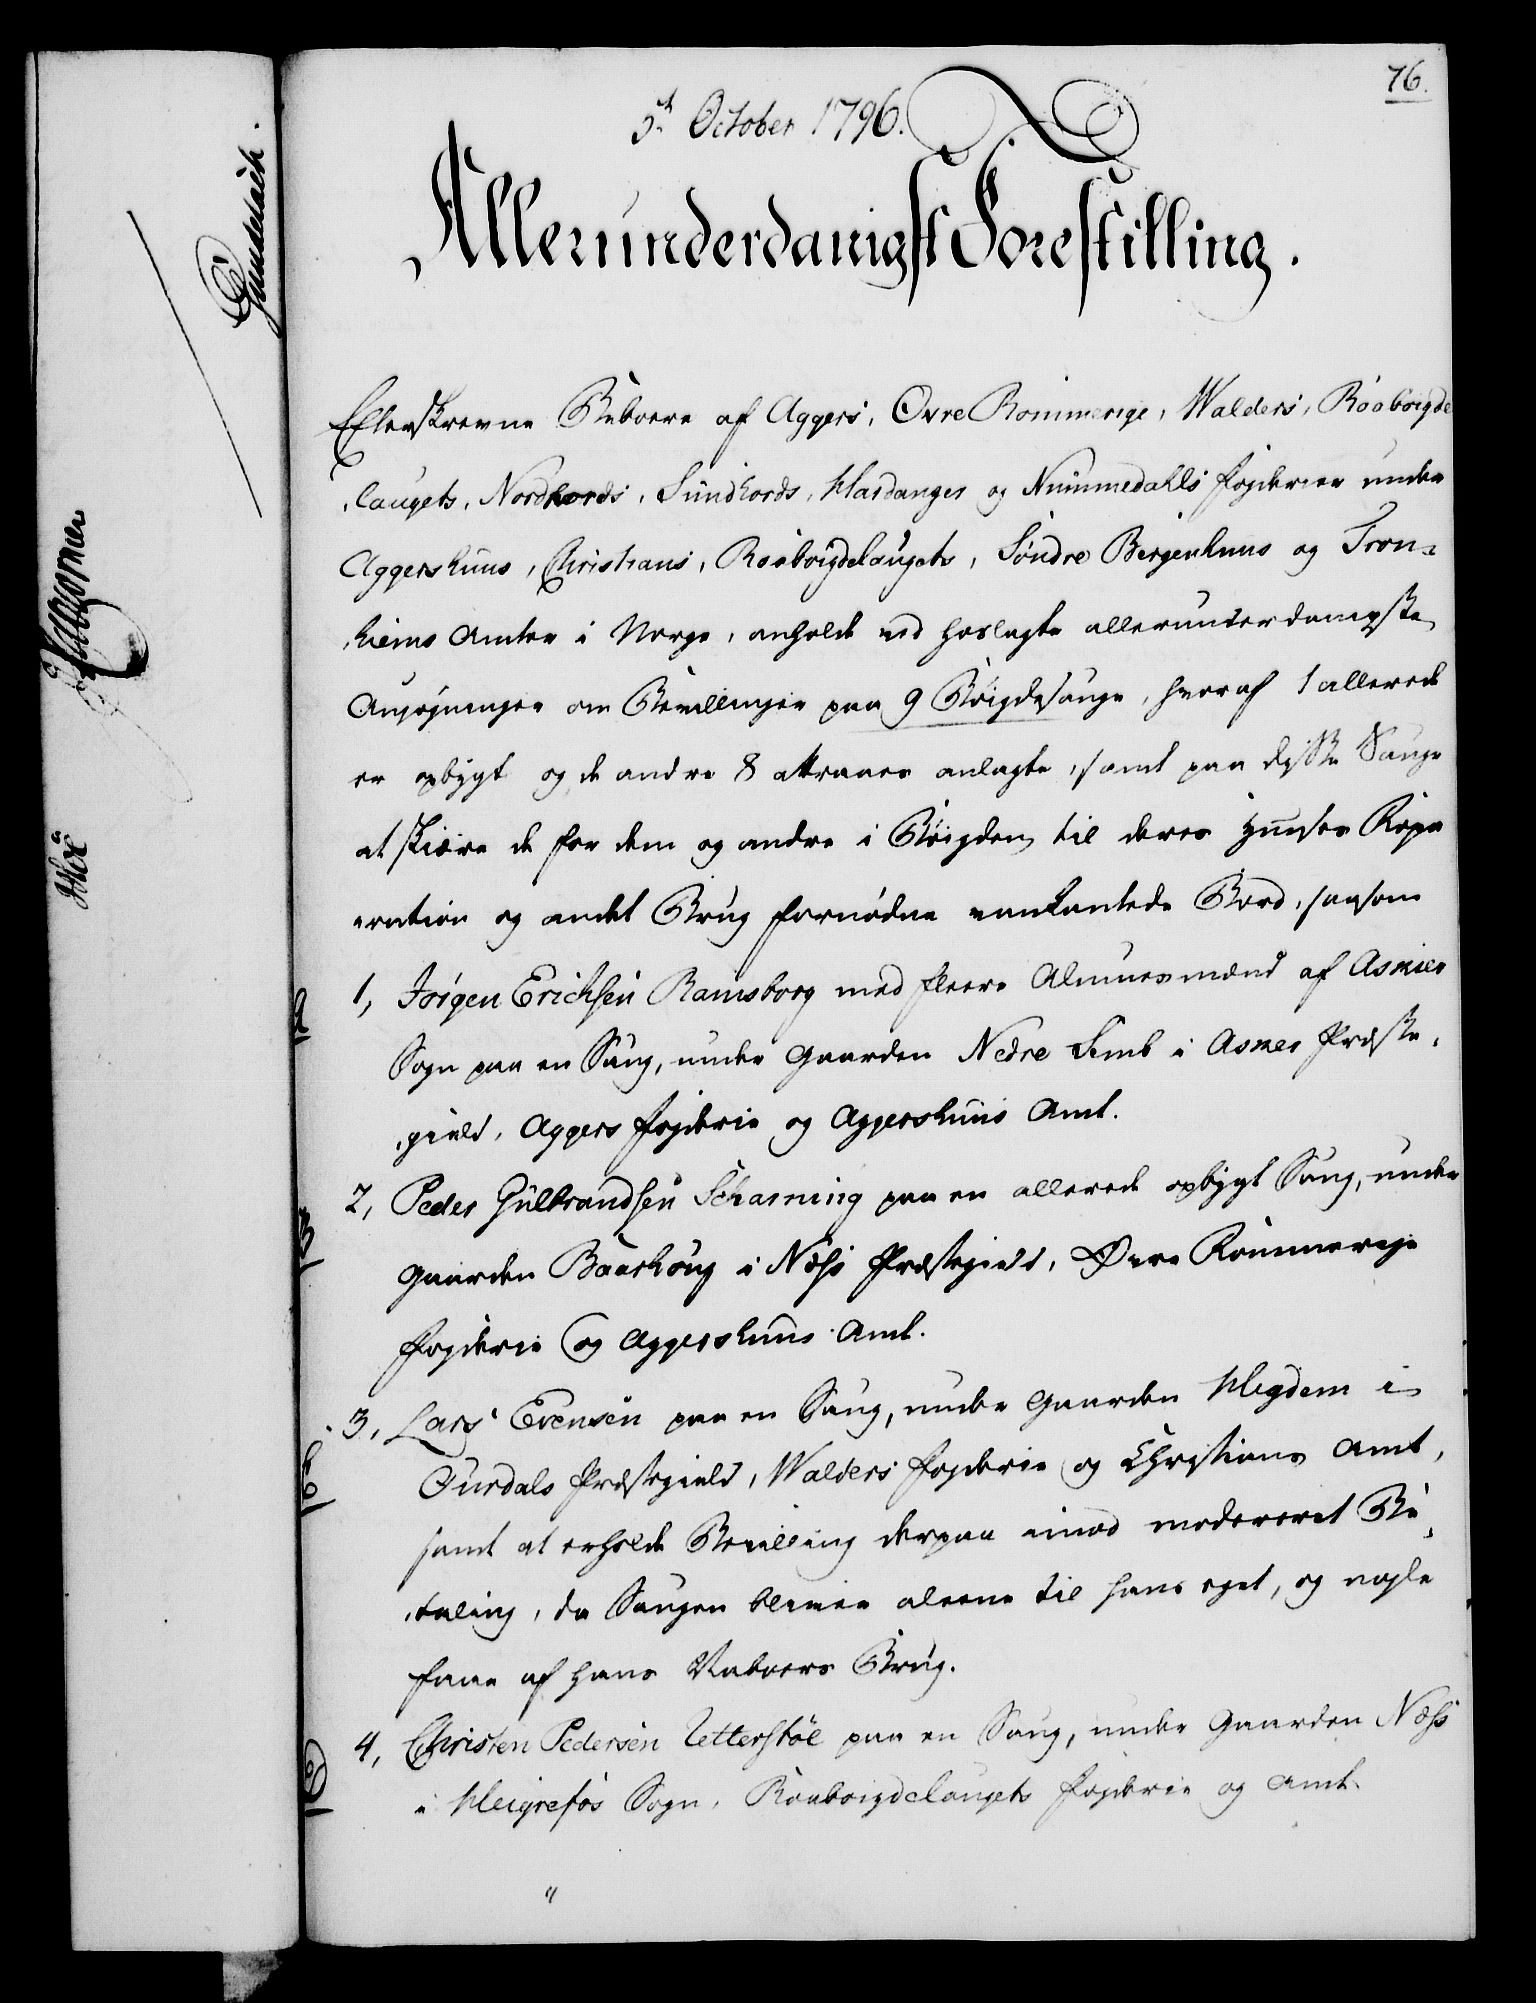 76.
5t October 1796.
Allerunderdanigst Forestilling.
Efterskrevne Beboere af Aggers, Øvre Rommerige, Walders, Raaboigde
laugets, Nordhords, Sundhords, Hardanger og Nummedahls Fogderier under
Aggershuus, Christians, Raaboigdelaugets, Søndre Bergenhuus og Tron-
hiems Amter i Norge, anholde ved hoslagte allerunderdanigste
Ansøgninger om Bevillinger paa 9 Bøigdesauge, hvoraf 1 allerede
er opbygt og de andre 8 attraaes anlagte, samt paa disse Sauge
at skiære de for dem og andre i Bøigden til deres Huuses Repa
ration og andet Brug fornødne vankantede Bord, saasom
1, Jørgen Erichsen Ramsborg med fleere Almuesmænd af Asker
Sogn paa en Saug, under Gaarden Nedre Semb i Asker Præste-
gield, Aggers Fogderie og Aggershuus Amt.
2, Peder Gulbrandsen Scharning paa en allerede opbygt Saug, under
Gaarden Baashoug i Næss Præstegield, Øvre Rommerige
Fogderie og Aggershuus Amt.
3, Lars Evensen paa en Saug, under Gaarden Hegdem i
Ourdals Præstegield, Walders Fogderie og Christians Amt,
samt at erholde Bevilling derpaa imod modereret Be-
taling, da Saugen bliver aleene til hans eget, og nogle
faae af hans Naboers Brug.
4, Christen Pedersen Uetterstøl paa en Saug, under Gaarden Næss
i Heigrefos Sogn, Raaboigdelaugets Fogderie og Amt.